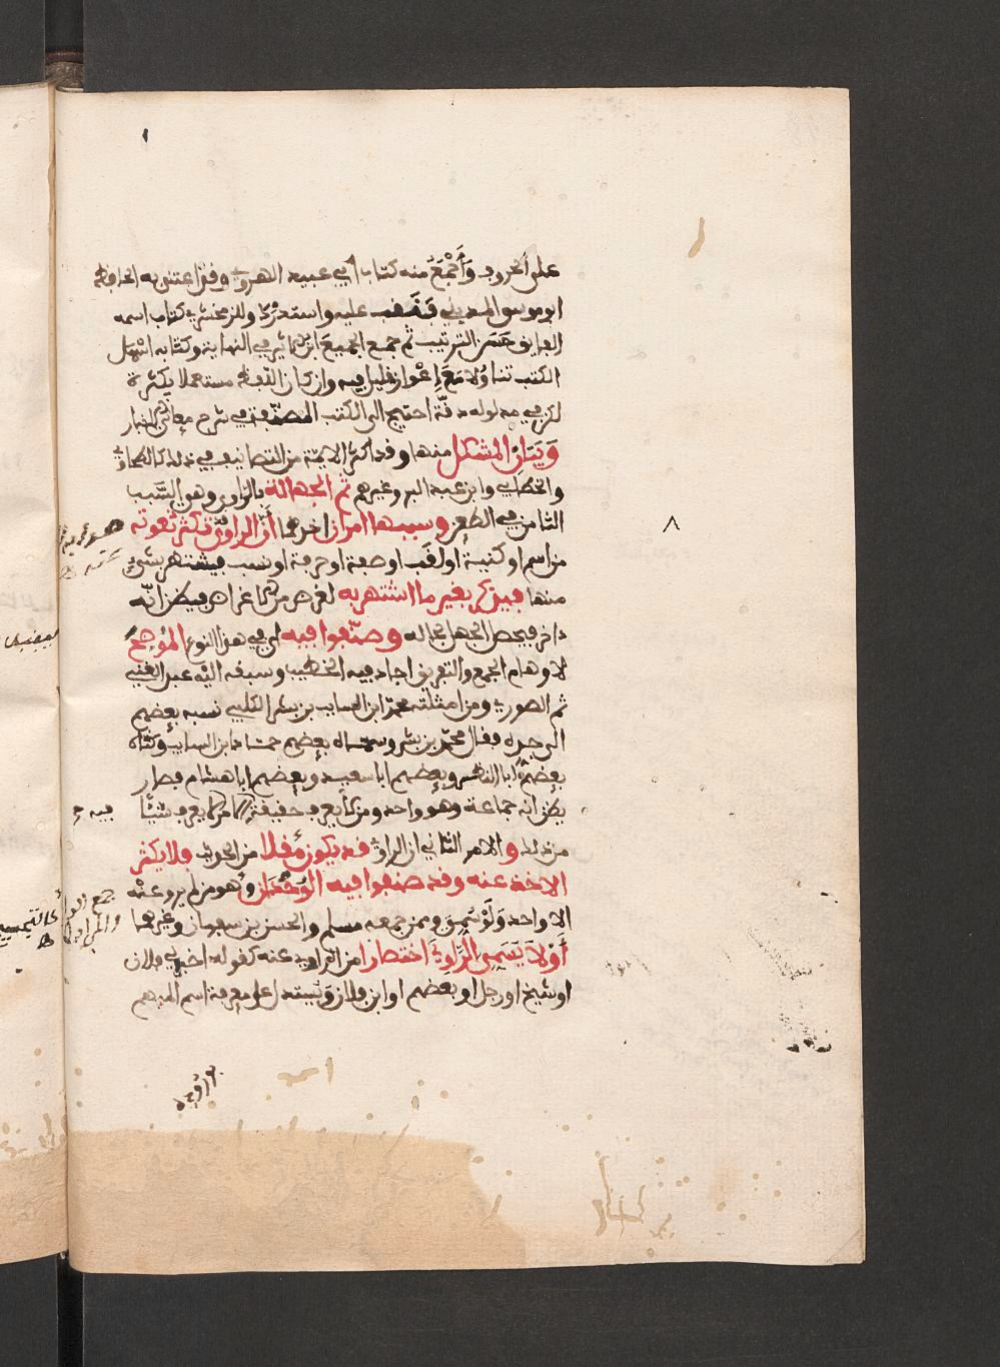 على الحروف وَأَجْمَعُ منه كتاب أبي عبيد الهروي وقد اعتنى به الحافظ
ابو موسى المديني فَنَقَّب عليه واستدرك وللزمخشري كتاب اسمه
الفايق حَسَن الترتيب ثم جمع الجميعَ ابن الاثير في النهاية وكتابه اسهل
الكتب تناوُلا مَعَ إِعْواز قليل فيه وان كان اللفظ مستعملا بكثرة
لكن في مدلوله دقّة احتيج الى الكتب المصنّفة في شرح معاني الاخبار
وَبَيَانِ المشكل منها وقد اكثر الايمّة من التصانيف في ذلك كالطحاوي
والخطابي وابن عبد البر وغيرهم ثم الجهالة بالراوي وهي السَّبب
الثامن في الطعن وسببها امران احدهما أنّ الراويَ قد تكثر نعوته
من اسم او كنية او لقب او صفة او حرفة او نسب فيشتهر بشيء
منها فيذكر بغير ما اشتهر به لغرض من الاغراض فيظن انّه
ءاخر فيحصل الجهل بحاله وصنّفوا فيه اي في هذا النوع المُوَضِّحَ
لاوهام الجمع والتفريق اجاد فيه الخطيب وسبقه اليْه عبد الغني
ثم الصوري ومن امثلته محمّد ابن السايب بن بشر الكلبي نسبه بعضهم
الى جده فقال محمّد بن بشر وسماه بعضهم حماد ابن السايب وكناه
بعضهم ابا النضر وبعضهم ابا سعيد وبعضهم ابا هشام فصار
يظن انه جماعة وهو واحد ومن لا يعرف حقيقة الامر لا يعرف شيئًا
فيه
من ذلك والامر الثاني ان الراوي قد يكون مُقِلا من الحديث فلا يكثر
الاخذ عنه وقد صنفوا فيه الوُحْدَان وهو من لم يرو عنه
الا واحد وَلَوْ سُمِّيَ وممن جمعه مسلم والحسن بن سفيان وغيرهما
أَوْ لاَ يُسَمى الرَّاوِي اختصارا من الراوي عنه كقوله اخبرني فلان
او شيخ او رجل او بعضهم او ابن فلان وَيُستدل على معرفة اسم المبهم